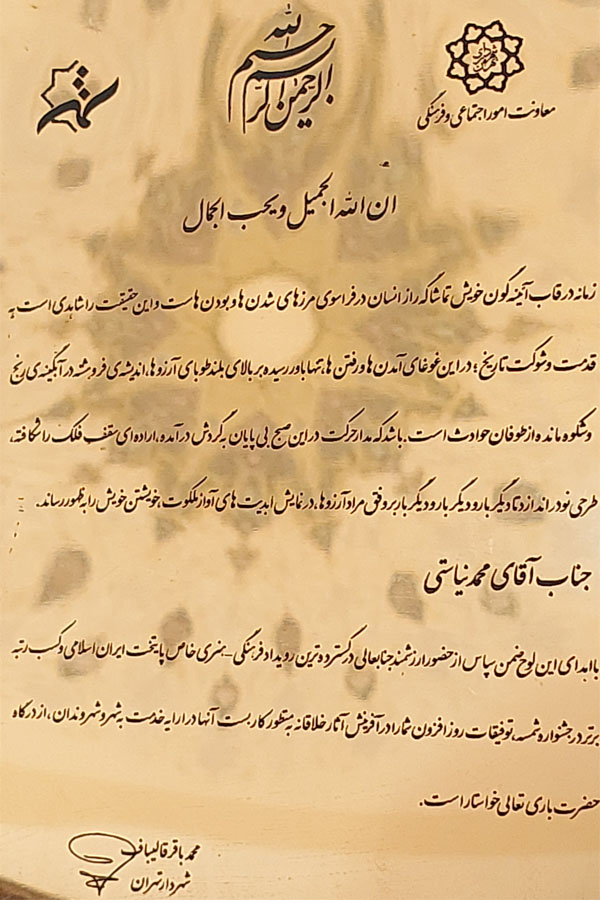 بسم الله الرحمن الرحیم
شهرداری تهران
معاونت امور اجتماعی و فرهنگی
تهران
ان الله الجمیل و یحب الجمال
زمانه در قاب آئینه گون خویش تماشاگه راز انسان در فراسوی مرزهای شدن ها و بودن هاست و این حقیقت را شاهدی است به
قدمت و شوکت تاریخ؛ در این غوغای آمدن ها و رفتن ها، تنها باور رسیده بر بالای بلند طوبای آرزوها، اندیشه ی فروشته در آبگینه ی رنج
و شکوه مانده از طوفان حوادث است. باشد که مدار حرکت در این صبح بی پایان به گردش درآمده، اراده ای سقف فلک را شکافته،
طرحی نو در اندازد تا دیگر بار و دیگر بار و دیگر بار بر وفق مراد آرزوها، در نمایش ابدیت های آواز ملکوت، خویشتن خویش را به ظهور رساند.
جناب آقای محمد نیاستی
با اهدای این لوح ضمن سپاس از حضور ارزشمند جنابعالی در گسترده ترین رویداد فرهنگی - هنری خاص پایتخت ایران اسلامی و کسب رتبه
برتر در جشنواره شمسه، توفیقات روز افزون شما را در آفرینش آثار خلاقانه به منظور کاربست آنها در ارایه خدمت به شهر و شهروندان، از درگاه
حضرت باری تعالی خواستار است.
محمد باقر قالیباف
شهردار تهران